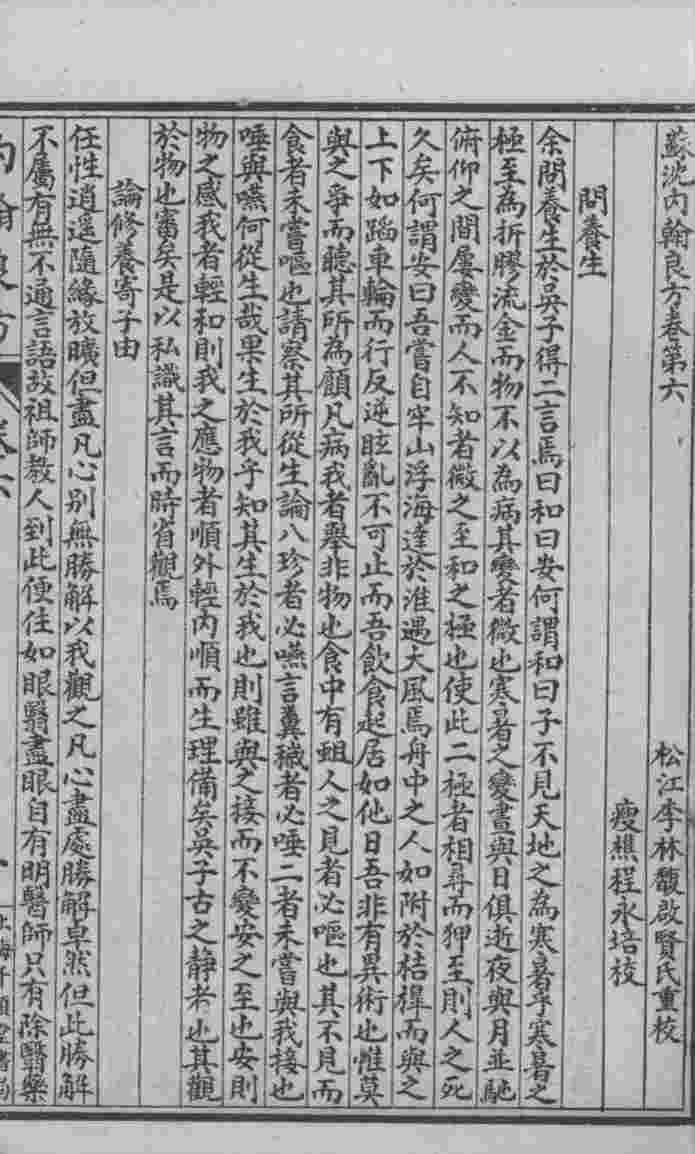 蘇沈內翰良方卷第六
松江李林馥啟賢氏重校
瘦樵程永培校
問養生
余問養生於吳子得二言焉曰和曰安何謂和曰子不見天地之為寒暑乎寒暑之
極至為折膠流金而物不以為病其變者微也寒暑之變晝與日俱逝夜與月並馳
俯仰之間屢變而人不知者微之至和之極也使此二極者相尋而狎至則人之死
久矣何謂安曰吾嘗自牢山浮海達於淮遇大風焉舟中之人如附於桔槹而與之
上下如蹈車輪而行反逆眩亂不可止而吾飲食起居如他日吾非有異術也惟莫
與之爭而聽其所為顧凡病我者舉非物也食中有蛆人之見者必嘔也其不見而
食者未嘗嘔也請察其所從生論八珍者必嚥言糞穢者必唾二者未嘗與我接也
唾與嚥何從生哉果生於我乎知其生於我也則雖與之接而不變安之至也安則
物之感我者輕和則我之應物者順外輕內順而生理備矣吳子古之靜者也其觀
於物也審矣是以私識其言而時省觀焉
論修養寄子由
任性逍遥隨緣放曠但盡凡心別無勝解以我觀之凡心盡處勝解卓然但此勝解
不屬有無不通言語故祖師教人到此便住如眼醫盡眼自有明醫師只有除醫藥